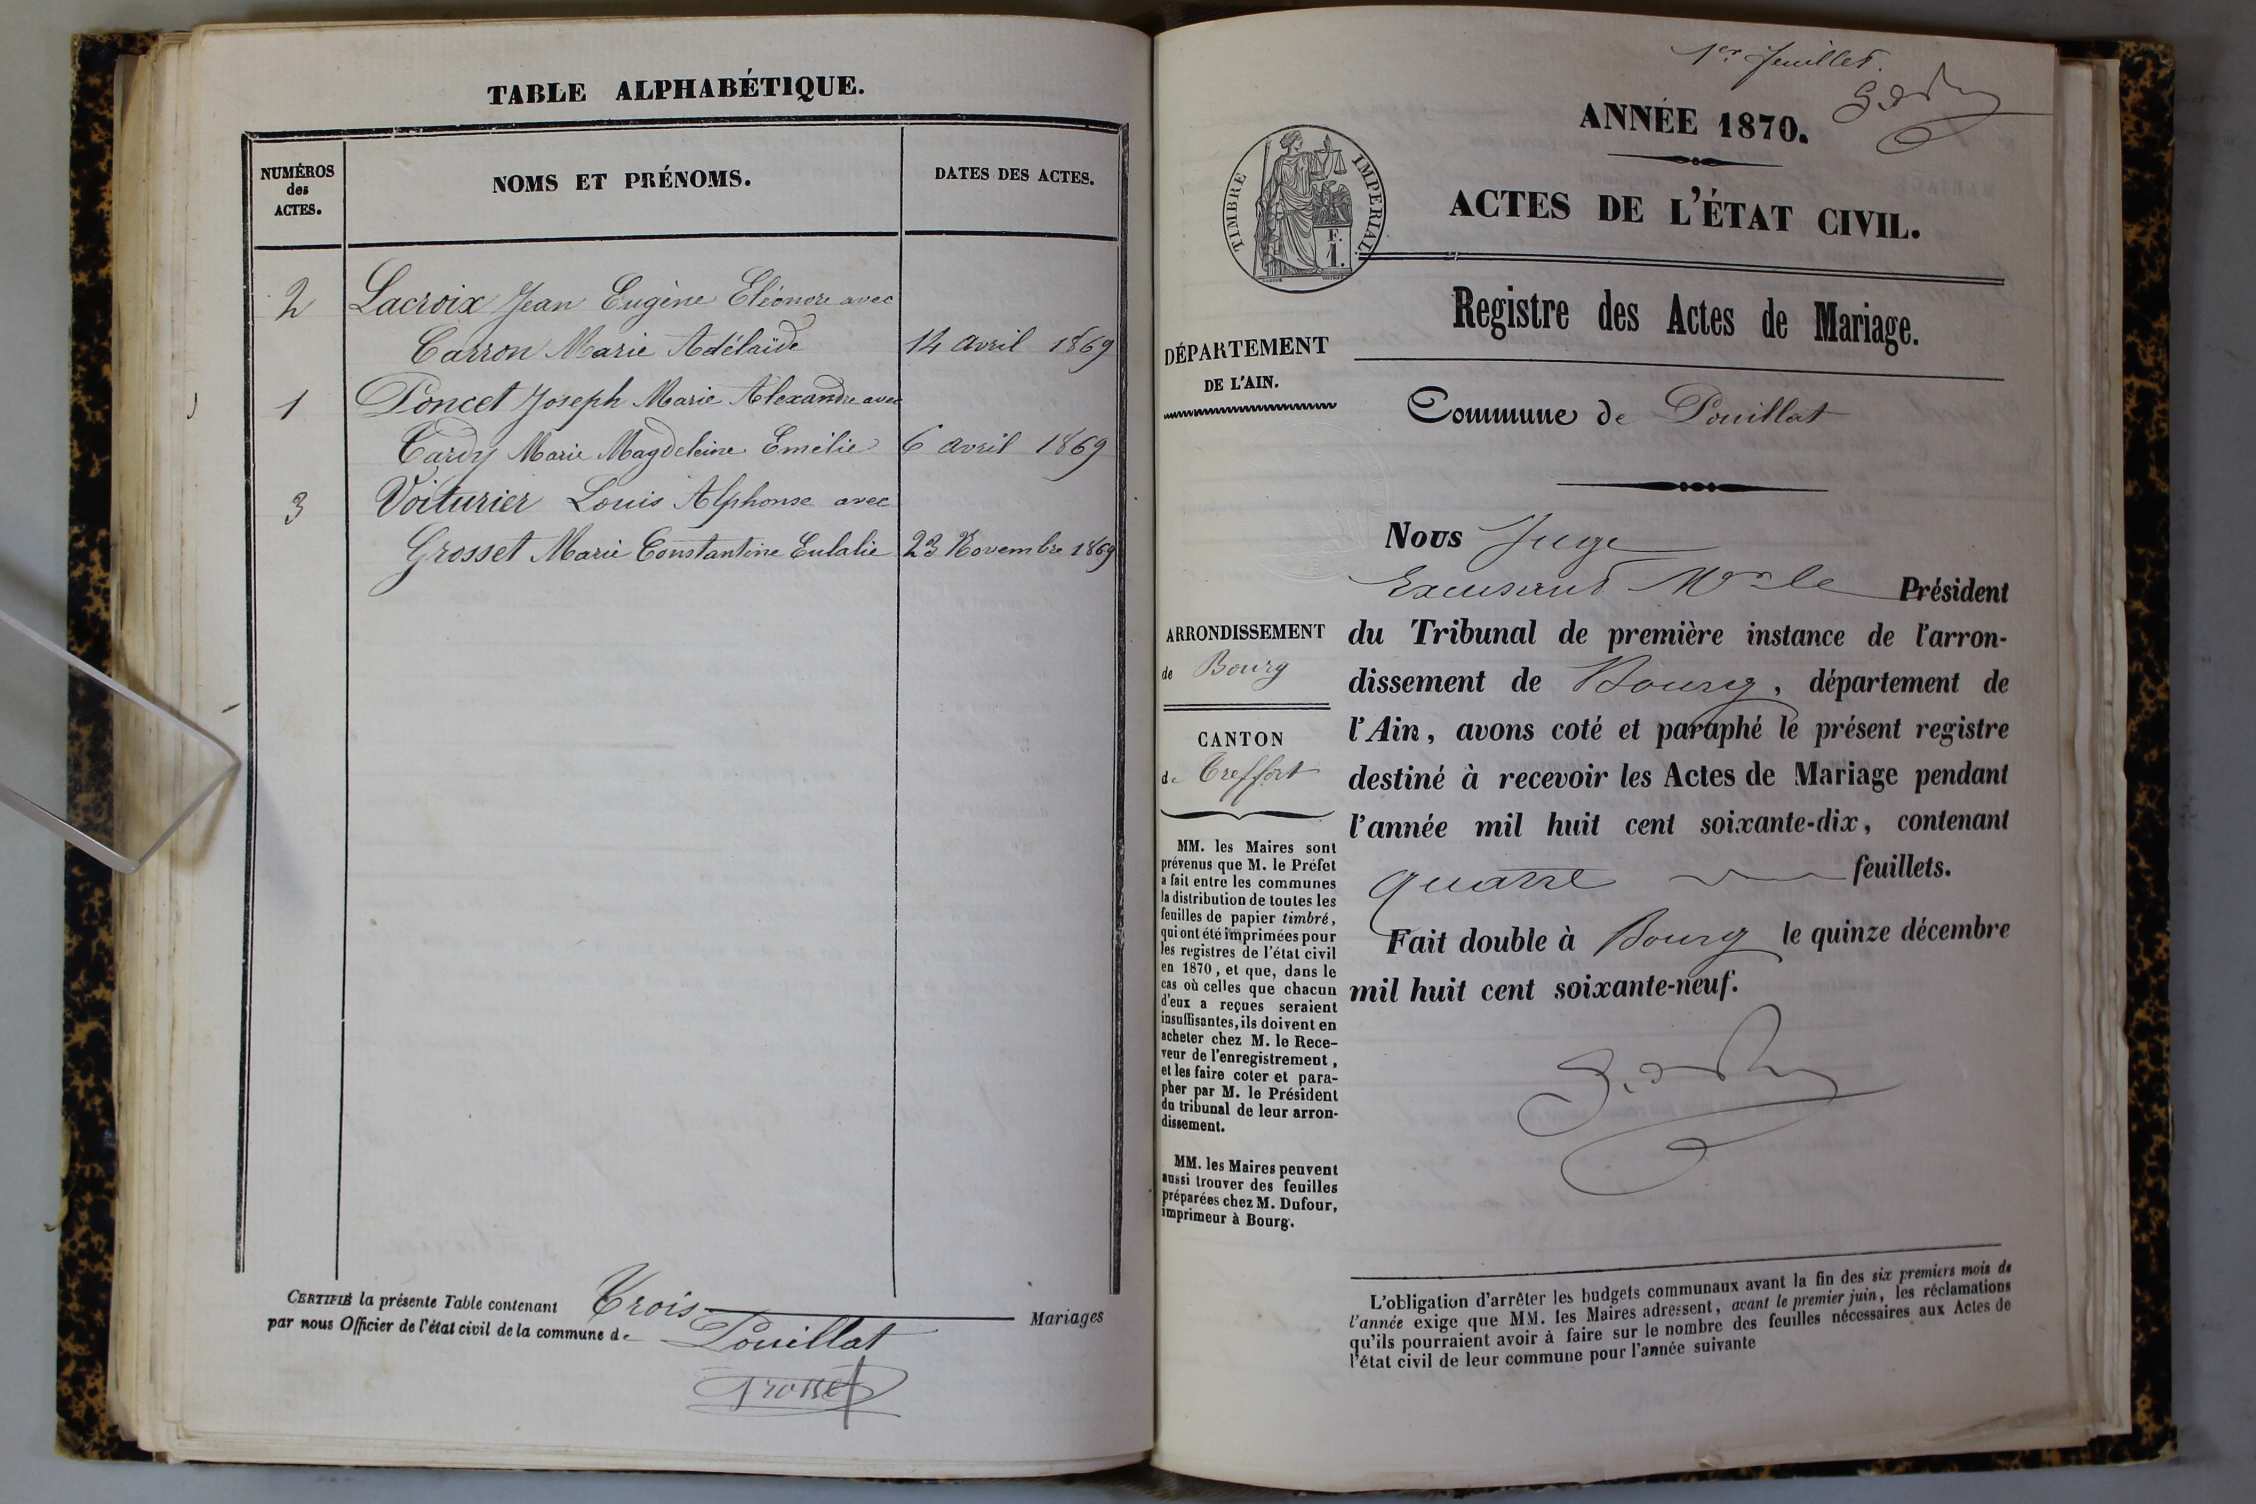 TABLE ALPHABÉTIQUE.
NUMÉROS
des
ACTES.
NOMS ET PRÉNOMS.
DATES DES ACTES.
2 Lacroix Jean Eugène Eléonore avec
Carron Marie Adélaïde 14 avril 1869
1 Poncet Joseph Marie Alexandre avec
Tardy Marie Magdeleine Emélie 6 avril 1869
3 Voiturier Louis Alphonse avec
Grosset Marie Constantine Eulalie 23 Novembre 1869
CERTIFIÉ la présente Table contenant Trois Mariages
par nous Officier de l'état civil de la commune de Pouillat
Grosset
1er feuillet.
ANNÉE 1870.
TIMBRE IMPERIAL
F.
1.
ACTES DE L'ÉTAT CIVIL.
Registre des Actes de Mariage.
DÉPARTEMENT
DE L'AIN.
Commune de Pouillat
ARRONDISSEMENT
de Bourg
CANTON
de Treffort
MM. les Maires sont
prévenus que M. le Préfet
a fait entre les communes
la distribution de toutes les
feuilles de papier timbré,
qui ont été imprimées pour
les registres de l'état civil
en 1870, et que, dans le
cas où celles que chacun
d'eux a reçues seraient
insuffisantes, ils doivent en
acheter chez M. le Rece-
veur de l'enregistrement,
et les faire coter et para-
pher par M. le Président
du tribunal de leur arron-
dissement.
MM. les Maires peuvent
aussi trouver des feuilles
préparées chez M. Dufour,
imprimeur à Bourg.
Nous Juge
Excusant Mr le Président
du Tribunal de première instance de l'arron-
dissement de Bourg, département de
l'Ain, avons coté et paraphé le présent registre
destiné à recevoir les Actes de Mariage pendant
l'année mil huit cent soixante-dix, contenant
quatre feuillets.
Fait double à Bourg le quinze décembre
mil huit cent soixante-neuf.
L'obligation d'arrêter les budgets communaux avant la fin des six premiers mois de
l'année exige que MM. les Maires adressent, avant le premier juin, les réclamations
qu'ils pourraient avoir à faire sur le nombre des feuilles nécessaires aux Actes de
l'état civil de leur commune pour l'année suivante